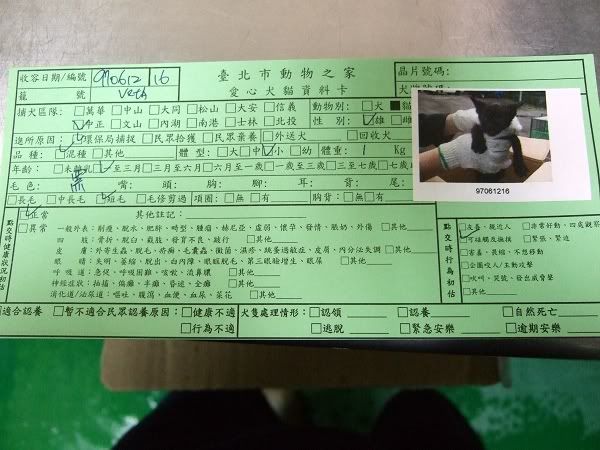 收容日期/編號 970612 16 臺北市動物之家 晶片號碼:
籠 號 愛心犬貓資料卡
捕犬區隊: □萬華 □中山 □大同 □松山 □大安 □信義 動物別: □犬 ■貓
□文山 □內湖 □南港 □士林 □北投 性 別: □雄 □雌
進所原因: □環保局捕捉 □民眾拾獲 □民眾棄養 □外送犬 □回收犬
品 種: □混種 □其他 體 型: □大 □中 □小 □幼 體重: 1 Kg
年齡: □至三月 □三月至六月 □六月至一歲 □一歲至三歲 □三歲至七歲
毛色: 黑 嘴: 頭: 胸: 腳: 耳: 背: 尾:
□長毛 □中長毛 □短毛 □毛修剪過 項圈: □無 □有 □
97061216
點交時健康狀況初估
□正常 其他註記:
□異常 一般外表: 削瘦、脫水、肥胖、畸型、腫瘤、赫尼亞、虛弱、懷孕、發情、脹奶、外傷 □其他
四 肢: 骨折、脫臼、截肢、發育不良、跛行 □其他
皮 膚: 外寄生蟲、脫毛、疥癬、毛囊蟲、黴菌、濕疹、跳蚤過敏症、皮屑、內分泌失調 □其他
眼 睛: 失明、萎縮、脫出、白內障、眼瞼脫毛、第三眼瞼增生、眼屎 □其他
呼 吸 道: 急促、呼吸困難、咳嗽、流鼻膿 □其他
神經症狀: 抽搐、偏癱、半癱、昏迷、全癱 □其他
消化道/泌尿道: 嘔吐、腹瀉、血便、血尿、菜花 □其他
點交時行為初估
□友善、親近人 □非常好動、四處觀察
□可碰觸及撫摸 □緊張、緊迫
□害羞、畏縮、不想移動
□企圖咬人/主動攻擊
□吠叫、哭號、發出威脅聲
□其他
□適合認養 □暫不適合民眾認養原因: □健康不適 犬隻處理情形: □認領 □認養 □自然死亡
□行為不適 □逃脫 □緊急安樂 □逾期安樂